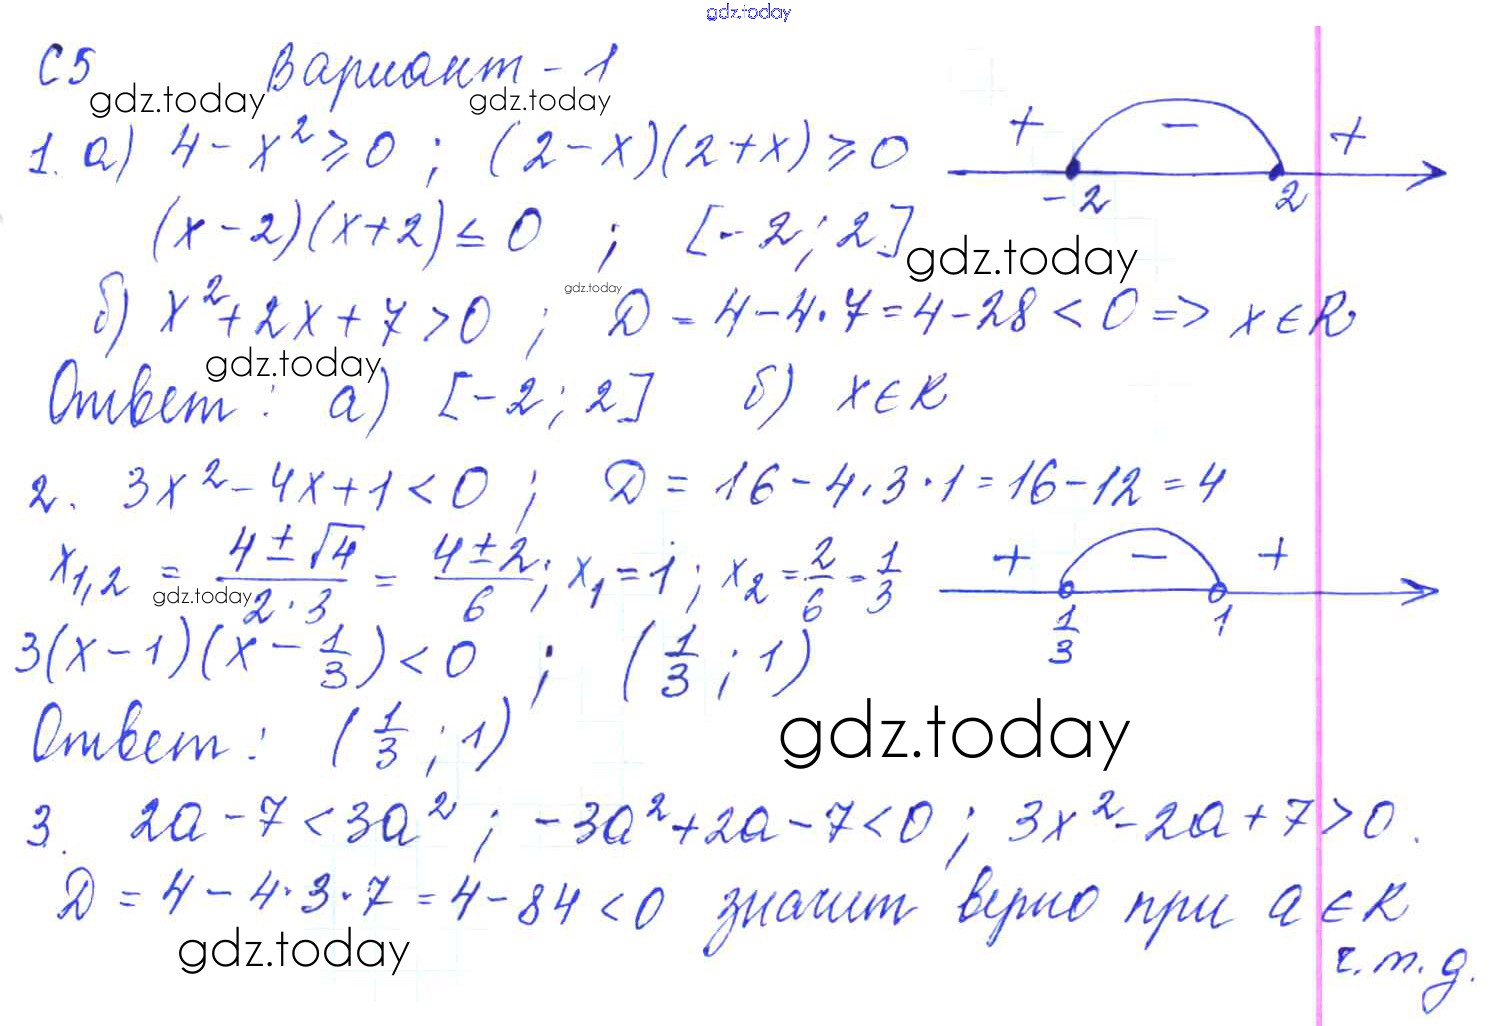 gdz.today
С5 Вариант - 1
gdz.today gdz.today
1. а) 4 - x² ≥ 0 ; (2 - x)(2 + x) ≥ 0 + - +
-2 2
(x - 2)(x + 2) ≤ 0 ; [-2; 2]
gdz.today
gdz.today
б) x² + 2x + 7 > 0 ; D = 4 - 4·7 = 4 - 28 < 0 => x ∈ R
gdz.today
Ответ: а) [-2; 2] б) x ∈ R
2. 3x² - 4x + 1 < 0 ; D = 16 - 4·3·1 = 16 - 12 = 4
x₁,₂ = (4 ± √4)/(2·3) = (4 ± 2)/6 ; x₁ = 1 ; x₂ = 2/6 = 1/3 + - +
gdz.today
1/3 1
3(x - 1)(x - 1/3) < 0 ; (1/3 ; 1)
Ответ: (1/3 ; 1)
gdz.today
3. 2a - 7 < 3a² ; -3a² + 2a - 7 < 0 ; 3x² - 2a + 7 > 0.
D = 4 - 4·3·7 = 4 - 84 < 0 значит верно при a ∈ R
gdz.today
ч.т.д.